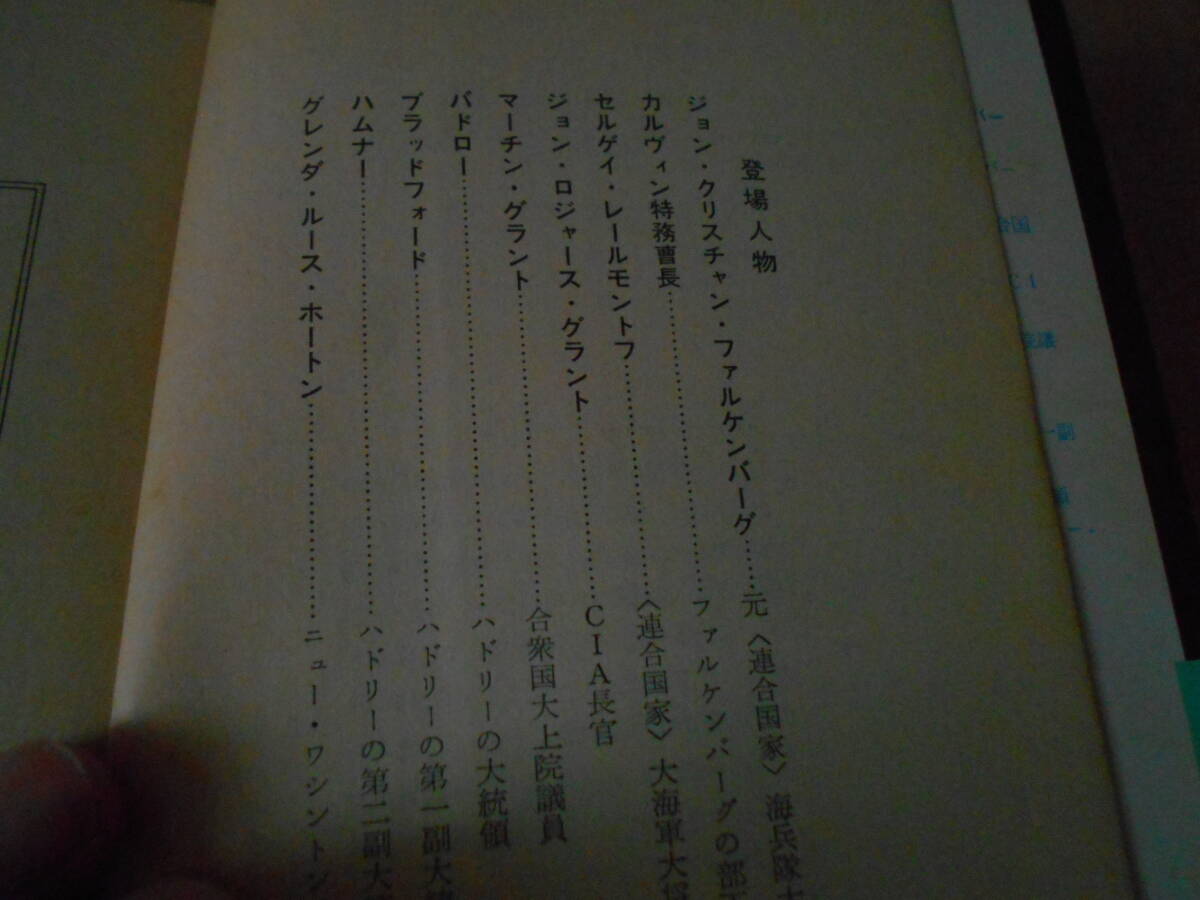 登場人物
ジョン・クリスチャン・ファルケンバーグ……元〈連合国家〉海兵隊
カルヴィン特務曹長……………………………ファルケンバーグの部
セルゲイ・レールモントフ……………………〈連合国家〉大海軍大将
ジョン・ロジャース・グラント………………CIA長官
マーチン・グラント……………………………合衆国大上院議員
バドロー…………………………………………ハドリーの大統領
ブラッドフォード………………………………ハドリーの第一副大統
ハムナー…………………………………………ハドリーの第二副大
グレンダ・ルース・ホートン…………………ニュー・ワシントン